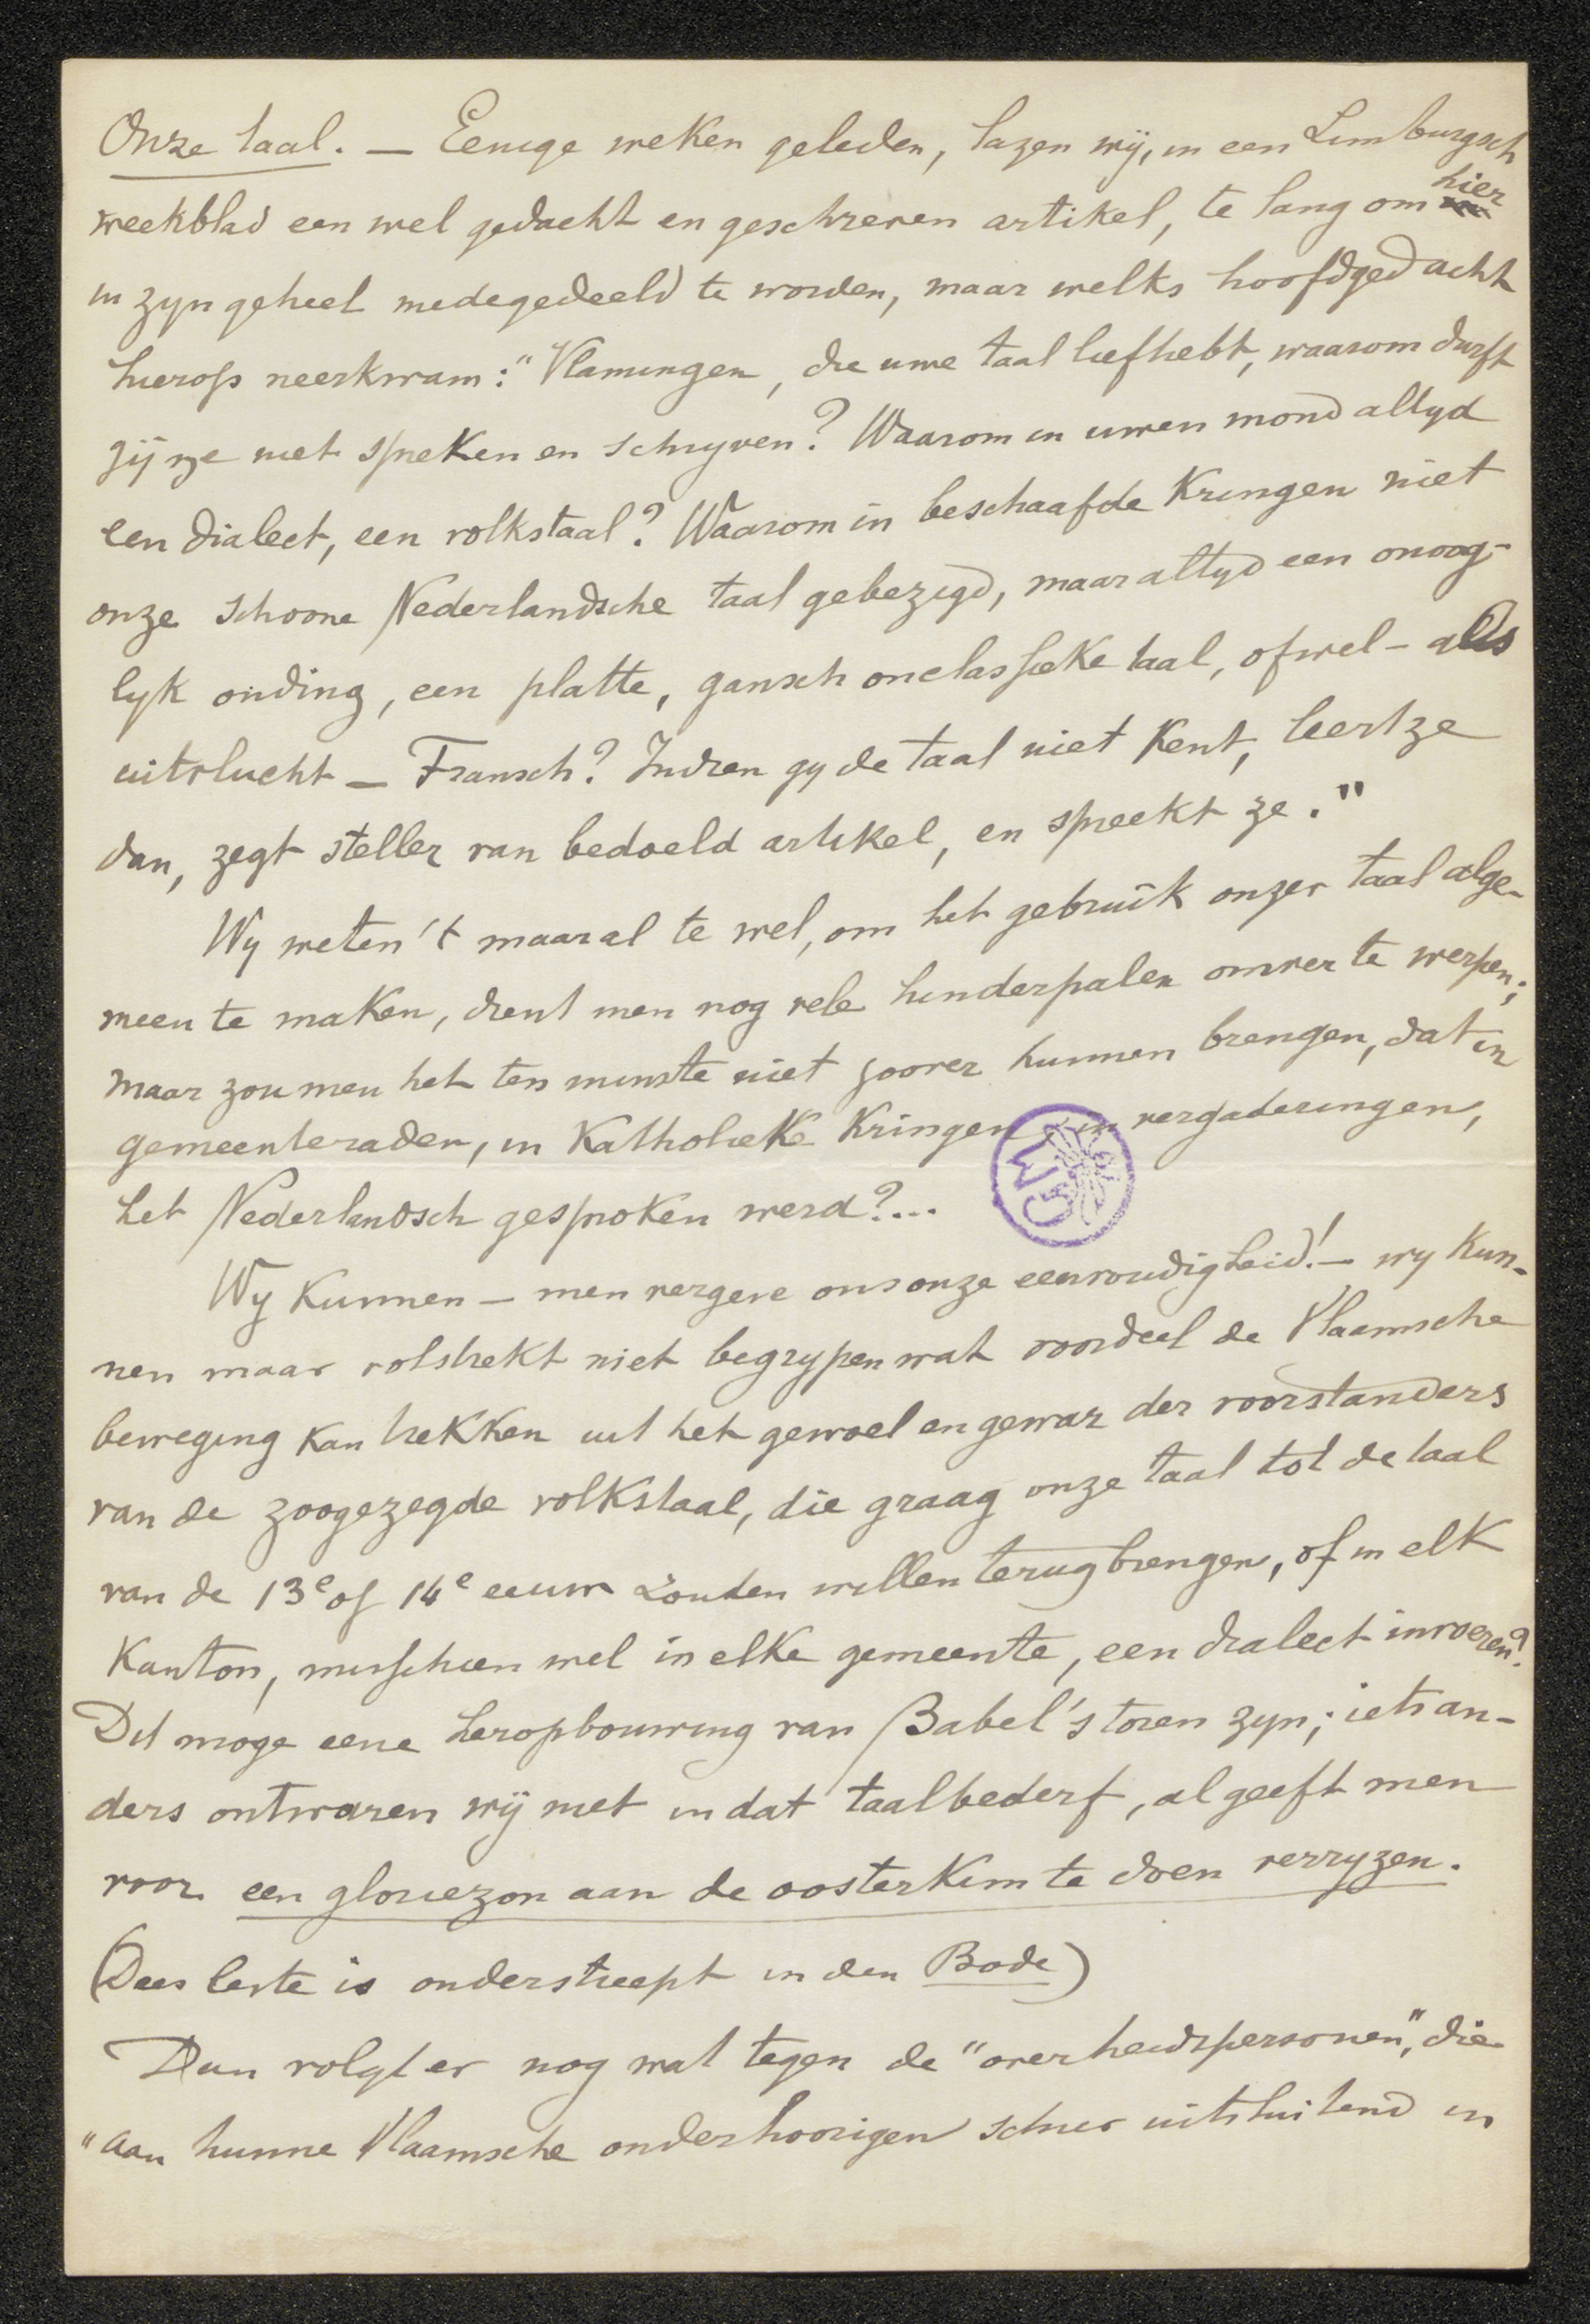 Onze taal. — Eenige weken geleden, lazen wij, in een Limburgsch
weekblad een wel gedacht en geschreven artikel, te lang om hier
in zyn geheel medegedeeld te worden, maar welks hoofdgedacht
hierop neerkwam: "Vlamingen, die uwe taal liefhebt, waarom durft
gij ze niet spreken en schryven? Waarom in uwen mond altyd
een dialect, een volkstaal? Waarom in beschaafde Kringen niet
onze schoone Nederlandsche taal gebezigd, maar altyd een onoog-
lyk onding, een platte, gansch onclassieke taal, ofwel – als
uitvlucht – Fransch? Indien gy de taal niet Kent, leert ze
dan, zegt steller van bedoeld artikel, en spreekt ze."
Wy weten 't maar al te wel, om het gebruik onzer taal alge-
meen te maken, dient men nog vele hinderpalen omver te werpen;
maar zou men het ten minste niet zoover kunnen brengen, dat in
gemeenteraden, in Katholieke Kringen, in vergaderingen,
het Nederlandsch gesproken werd?...
Wy Kunnen – men vergeve ons onze eenvoudigheid! – wy Kun-
nen maar volstrekt niet begrypen wat voordeel de Vlaamsche
beweging Kan trekken uit het gewoel en gewar der voorstanders
van de zoogezegde volkstaal, die graag onze taal tot de taal
van de 13e of 14e eeuw zouden willen terugbrengen, of in elk
Kanton, misschien wel in elke gemeente, een dialect invoeren?
Dit moge eene heropbouwing van Babel's toren zyn; iets an-
ders ontwaren wij niet in dat taalbederf, al geeft men
voor een gloriezon aan de oosterkim te doen verryzen.
(Dees leste is onderstreept in den Bode)
Dan volgt er nog wat tegen de "overheidspersonen", die
"aan hunne Vlaamsche onderhoorigen schier uitsluitend in